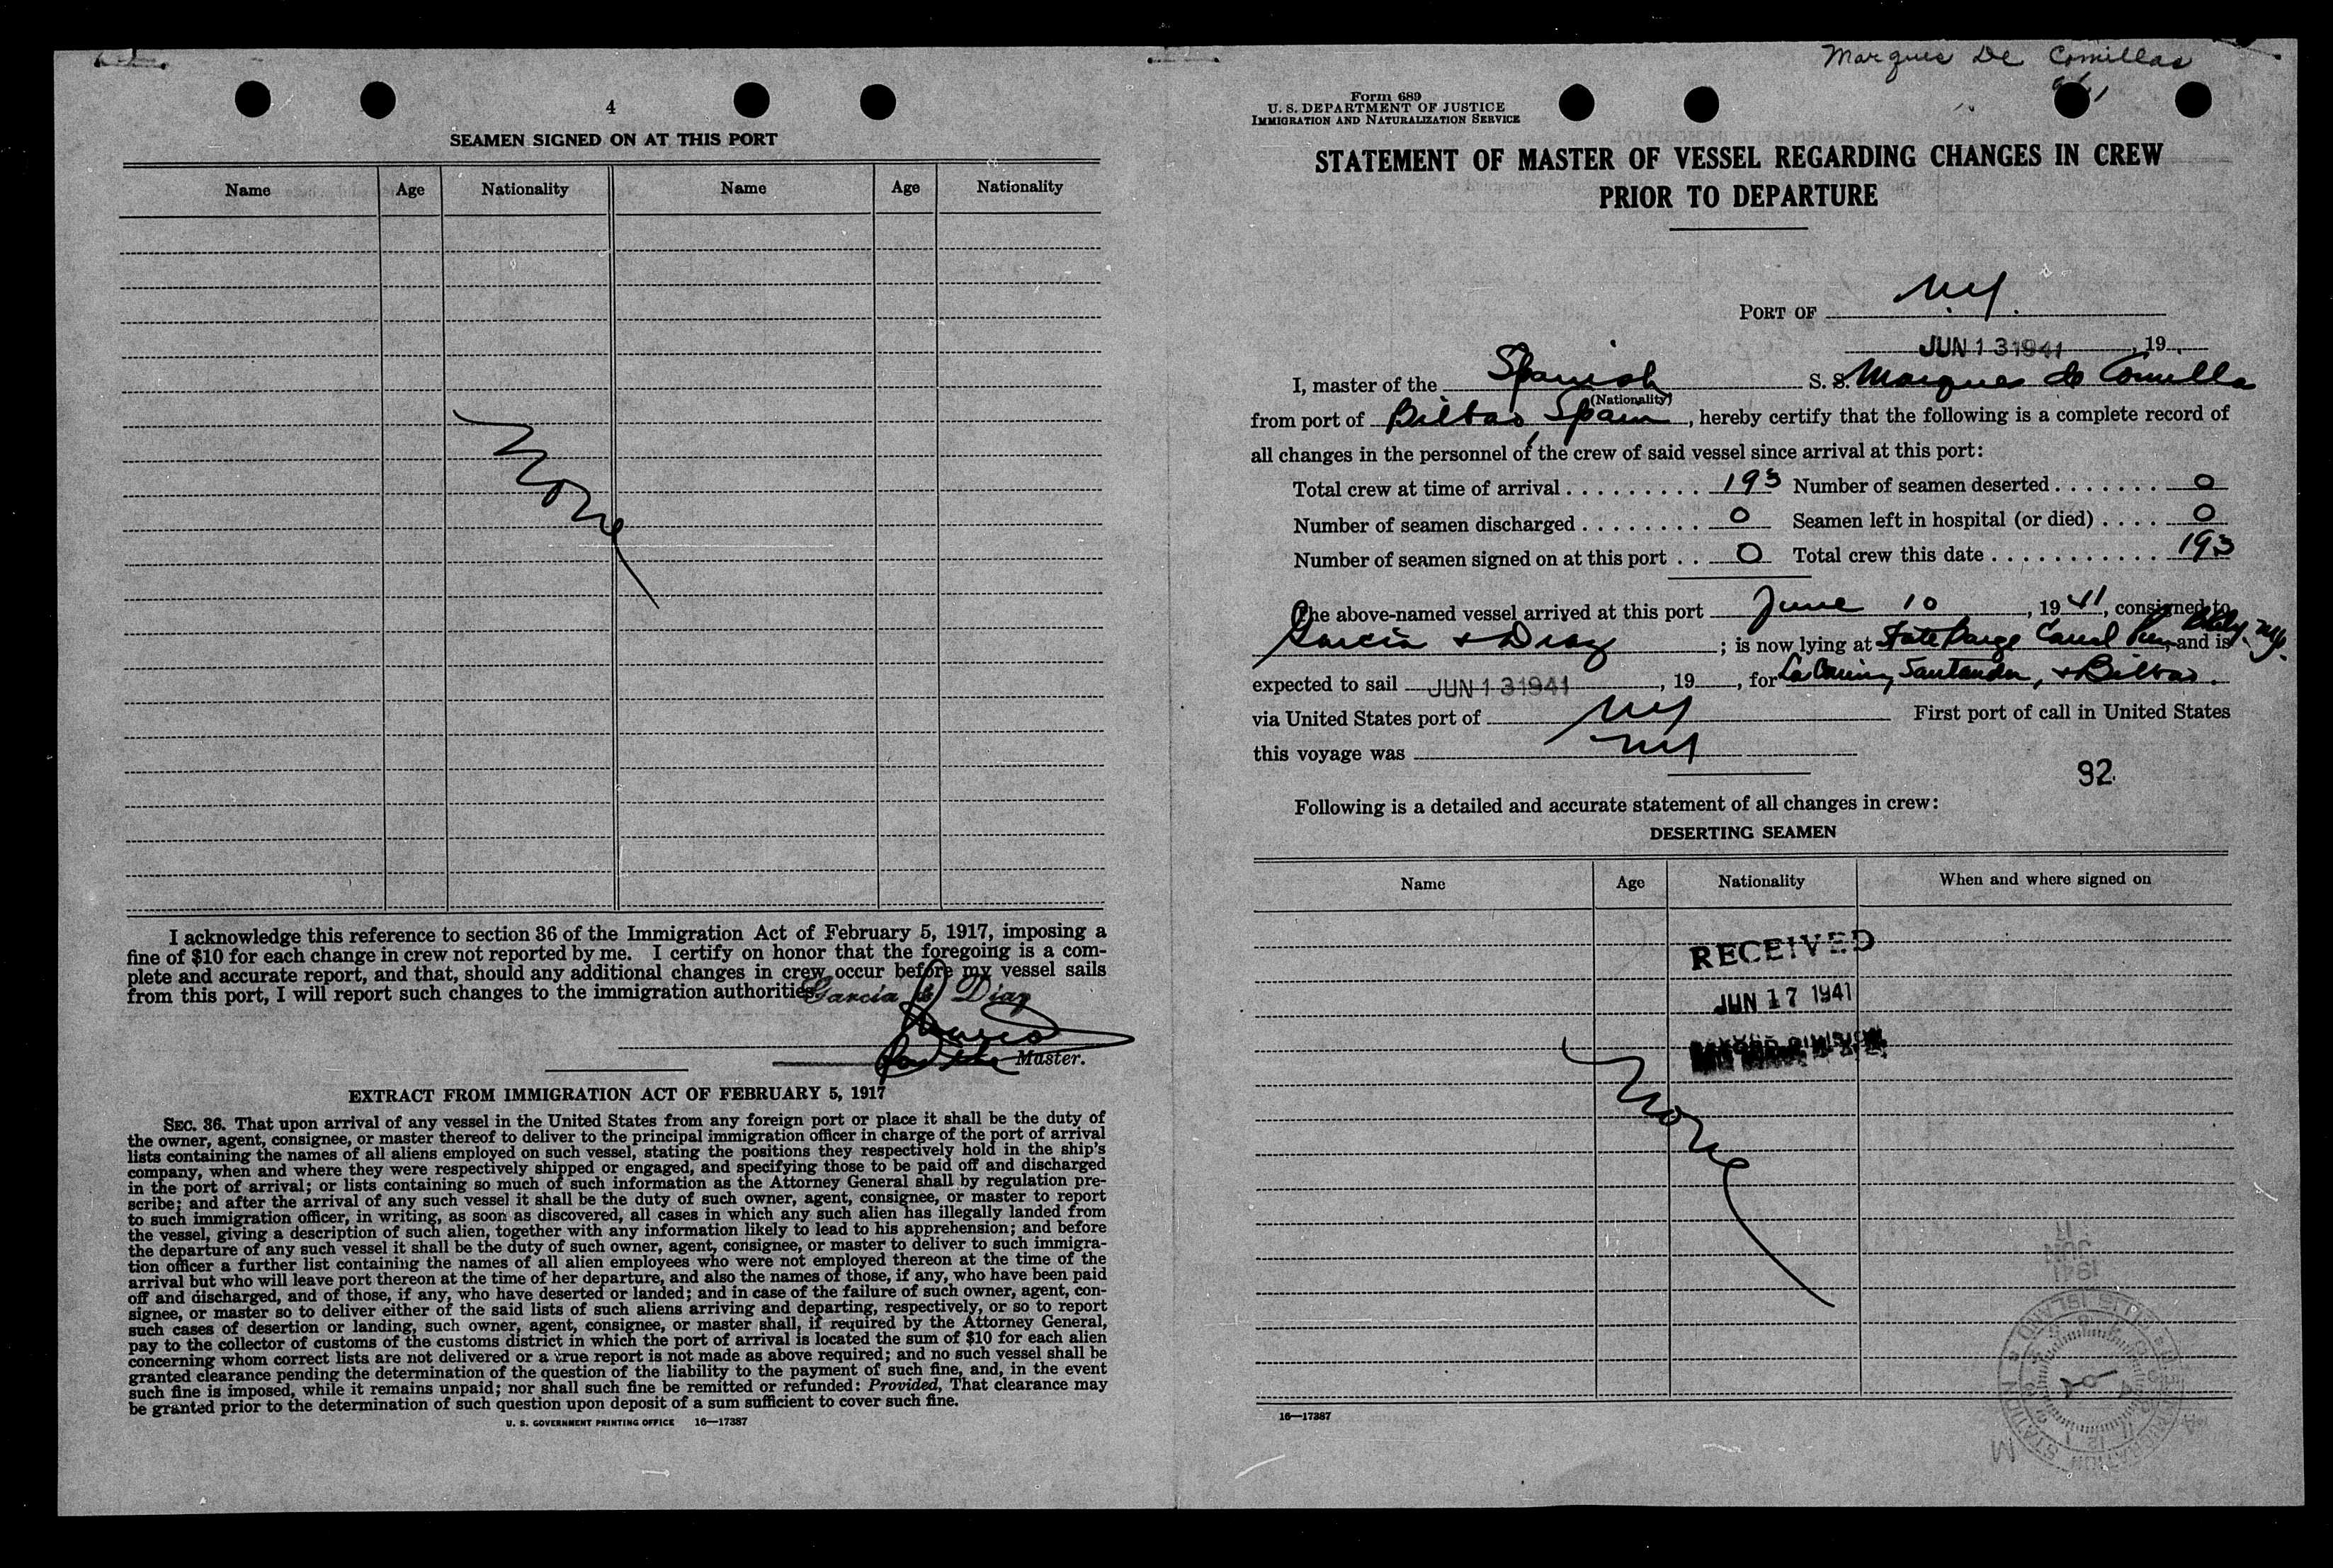 4
SEAMEN SIGNED ON AT THIS PORT
Name Age Nationality Name Age Nationality
None
I acknowledge this reference to section 36 of the Immigration Act of February 5, 1917, imposing a
fine of $10 for each change in crew not reported by me. I certify on honor that the foregoing is a com-
plete and accurate report, and that, should any additional changes in crew occur before my vessel sails
from this port, I will report such changes to the immigration authorities.
Garcia & Diaz
Master.
EXTRACT FROM IMMIGRATION ACT OF FEBRUARY 5, 1917
SEC. 36. That upon arrival of any vessel in the United States from any foreign port or place it shall be the duty of
the owner, agent, consignee, or master thereof to deliver to the principal immigration officer in charge of the port of arrival
lists containing the names of all aliens employed on such vessel, stating the positions they respectively hold in the ship's
company, when and where they were respectively shipped or engaged, and specifying those to be paid off and discharged
in the port of arrival; or lists containing so much of such information as the Attorney General shall by regulation pre-
scribe; and after the arrival of any such vessel it shall be the duty of such owner, agent, consignee, or master to report
to such immigration officer, in writing, as soon as discovered, all cases in which any such alien has illegally landed from
the vessel, giving a description of such alien, together with any information likely to lead to his apprehension; and before
the departure of any such vessel it shall be the duty of such owner, agent, consignee, or master to deliver to such immigra-
tion officer a further list containing the names of all alien employees who were not employed thereon at the time of the
arrival but who will leave port thereon at the time of her departure, and also the names of those, if any, who have been paid
off and discharged, and of those, if any, who have deserted or landed; and in case of the failure of such owner, agent, con-
signee, or master so to deliver either of the said lists of such aliens arriving and departing, respectively, or so to report
such cases of desertion or landing, such owner, agent, consignee, or master shall, if required by the Attorney General,
pay to the collector of customs of the customs district in which the port of arrival is located the sum of $10 for each alien
concerning whom correct lists are not delivered or a true report is not made as above required; and no such vessel shall be
granted clearance pending the determination of the question of the liability to the payment of such fine, and, in the event
such fine is imposed, while it remains unpaid; nor shall such fine be remitted or refunded: Provided, That clearance may
be granted prior to the determination of such question upon deposit of a sum sufficient to cover such fine.
U. S. GOVERNMENT PRINTING OFFICE 16—17387
Marques De Comillas
Form 689
U. S. DEPARTMENT OF JUSTICE
IMMIGRATION AND NATURALIZATION SERVICE
STATEMENT OF MASTER OF VESSEL REGARDING CHANGES IN CREW
PRIOR TO DEPARTURE
PORT OF N.Y.
JUN 13 1941, 19
I, master of the Spanish S. S. Marques de Comillas
(Nationality)
from port of Bilbao, Spain, hereby certify that the following is a complete record of
all changes in the personnel of the crew of said vessel since arrival at this port:
Total crew at time of arrival . . . . . . . . . . 193 Number of seamen deserted . . . . . . . 0
Number of seamen discharged . . . . . . . . 0 Seamen left in hospital (or died) . . . . 0
Number of seamen signed on at this port . . 0 Total crew this date . . . . . . . . . . . . 193
The above-named vessel arrived at this port June 10, 1941, consigned to
Garcia & Diaz; is now lying at State Barge Canal Pier, Bklyn. N.Y. and is
expected to sail JUN 13 1941, 19, for La Coruna, Santander, & Bilbao.
via United States port of NY First port of call in United States
this voyage was NY
92.
Following is a detailed and accurate statement of all changes in crew:
DESERTING SEAMEN
Name Age Nationality When and where signed on
RECEIVED
JUN 17 1941
None
17
JUN
1941
16—17387